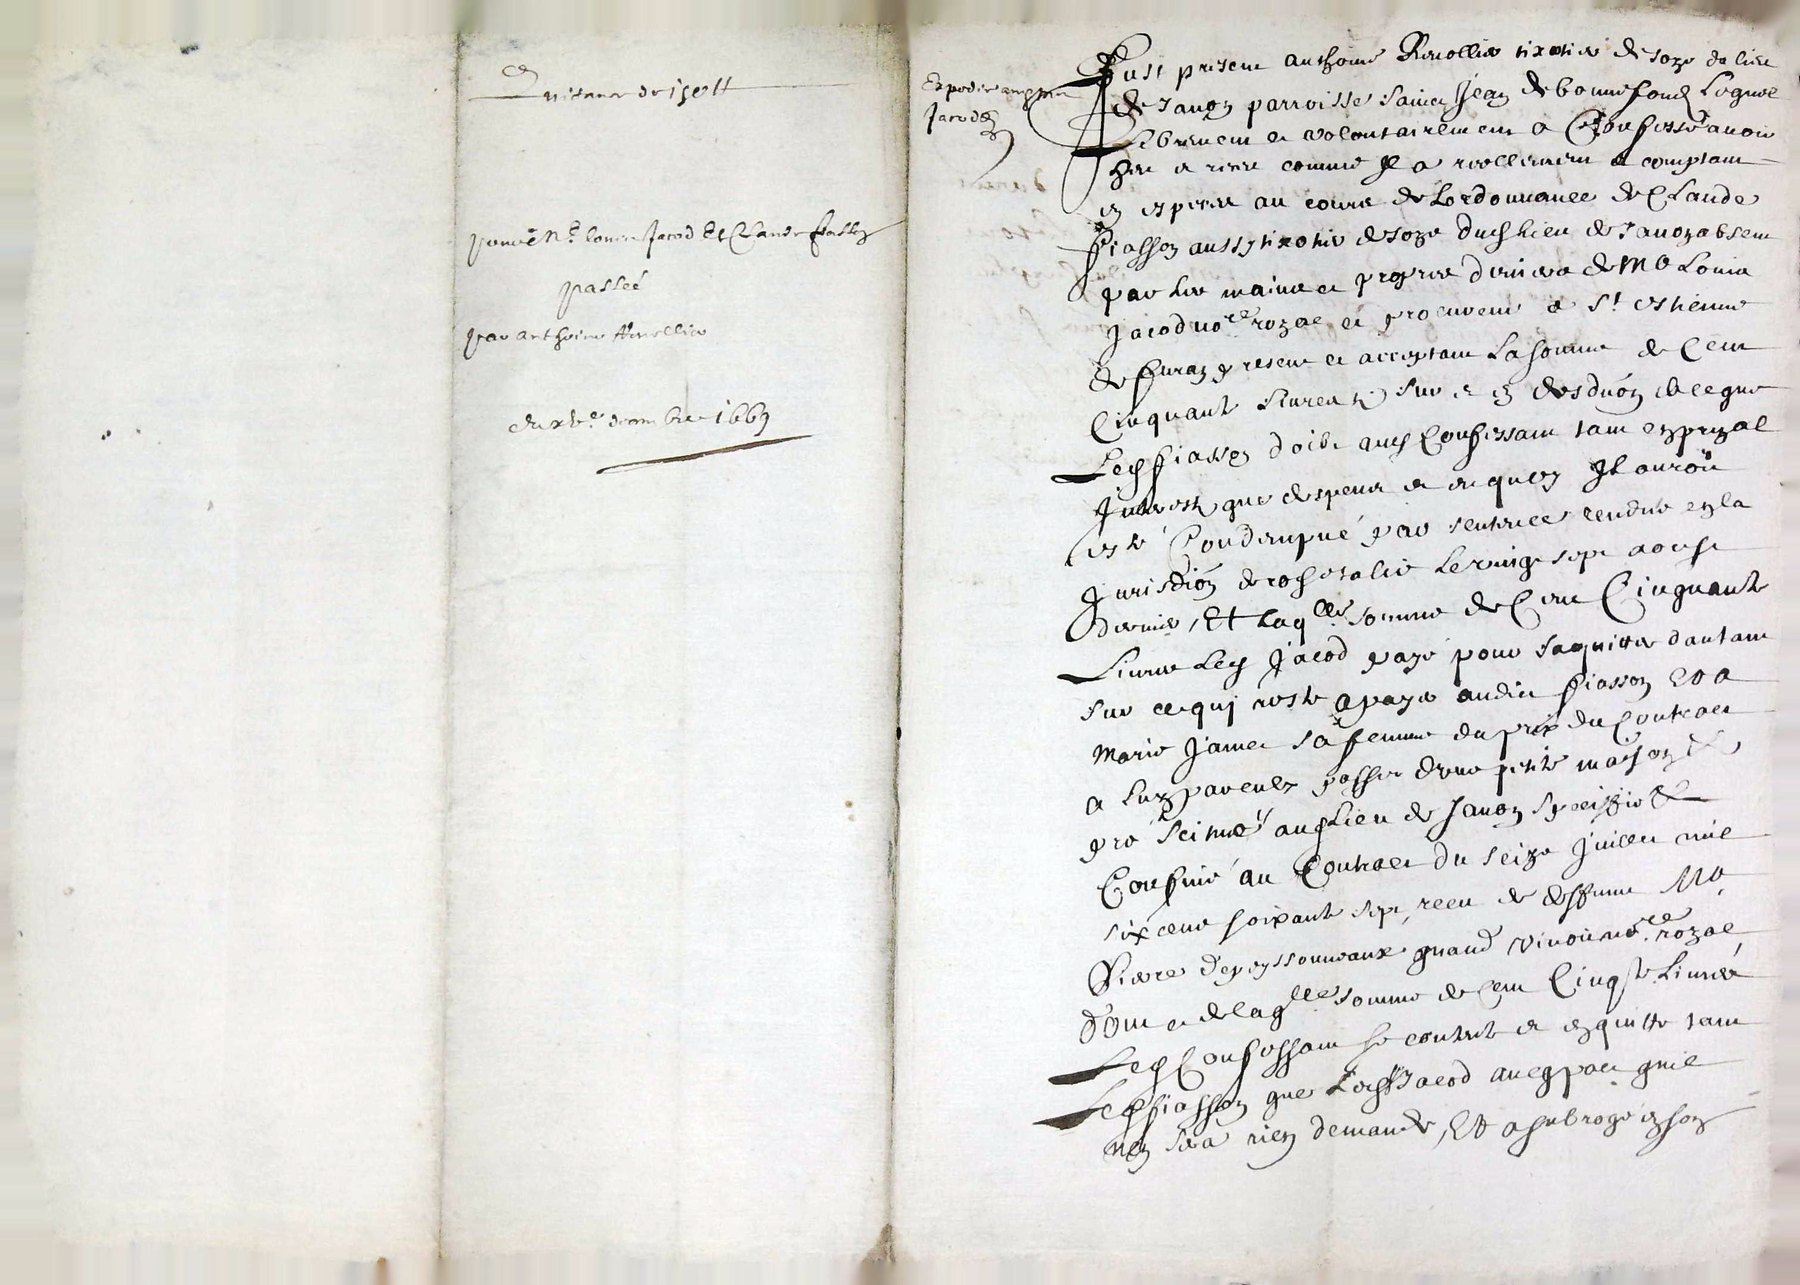 Quitance de 150 tt
pour Me louis Jacod Et Claude fiasson
passée
par anthoine Revollier
du xve decembre 1669
Expedié audit sieur
Jacod
Fust present anthoine Revollier tixotier de soye du lieu
de Janon parroisse sainct Jean de bonnefond Lequel
Librement et volontairement a Confessé avoir
heu et receu comme Il a reellement et comptant
en espece au cours de Lordonnance de Claude
fiasson aussy tixotier de soye dudit lieu de Janon absent
par les mains et propres deniers de Me Louis
Jacod nore royal et procureur a St estienne
de furan present et acceptant La somme de Cent
Cinquante Livres sur et en desduon de ce que
Ledit fiasson doibt audit Confessant tant en prinal
Interestz que despens et en quoy Il auroit
esté Condempné par sentence rendue en la
Jurisdion de rochetaliee Le vingt sept aoust
dernier, Et Laqlle somme de Cent Cinquante
Livres Ledit Jacod paye pour saquitter dautant
sur ce qui reste a payer audit fiasson Et a
Marie Jamet sa femme du prix du Contract
a luy par eulx passé dune petite maison
audit Lieu de Janon speciffié &
Confiné au Contract du seize Juillet mil
six cens soixante sept, receu de deffunct Me
Pierre quand vivoit nore royal
Donc et de laqlle somme de Cent Cinqte Livres
Ledit Confessant se contente et en quitte tant
Ledit fiasson que Ledit sr Jacod avec pact quil
nen sera rien demandé, Et a subrogé en son